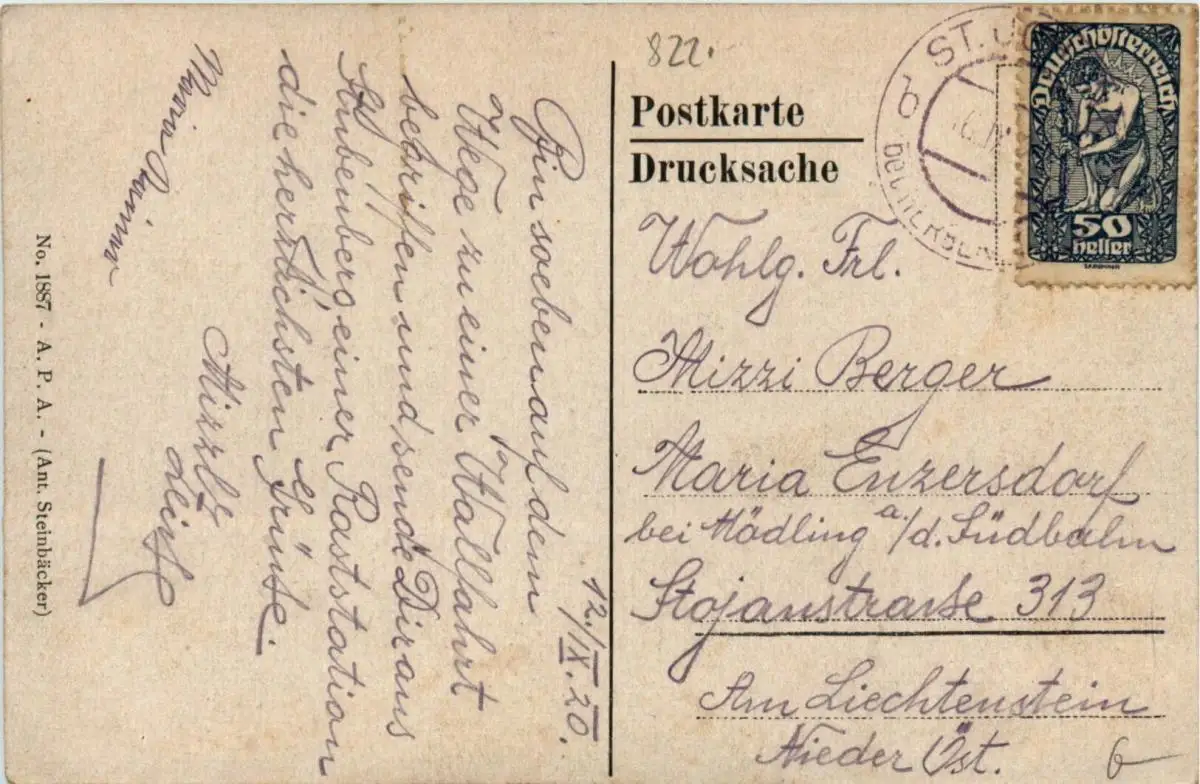 822.
Postkarte
Drucksache
ST.
b
Deutschösterreich
50
Heller
12./IX.20.
Bin soeben auf dem
Wege zu einer Wallfahrt
begriffen und sende Dir aus
Stubenberg, einer Raststation
die herzlichsten Grüße.
Mizzl
Maria
Wohlg. Frl.
Mizzi Berger
Maria Enzersdorf
bei Mödling a./d. Südbahn
Stojanstrasse 313
Am Liechtenstein
Nieder Öst.
6
No. 1887 - A. P. A. - (Ant. Steinbäcker)